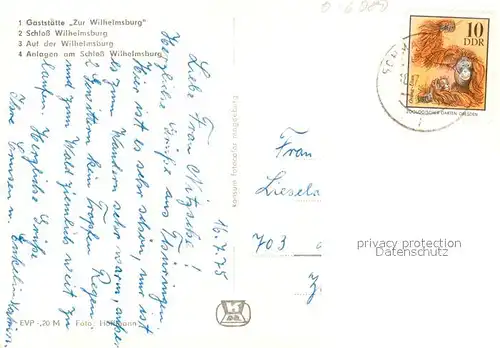 1 Gaststätte „Zur Wilhelmsburg"
2 Schloß Wilhelmsburg
3 Auf der Wilhelmsburg
4 Anlagen am Schloß Wilhelmsburg
16.7.75
Liebe Frau Nitzsche!
Herzliche Grüße aus Thüringen.
Hier ist es sehr schön, nur ist
es zum Wandern sehr warm, außer
2 Gewittern kein Tropfen Regen
und zum Wald ziemlich weit zu
laufen. Herzliche Grüße
Ihre
u. Enkelin
EVP -,20 M Foto: Hoffmann
10
DDR
ZOOLOGISCHER GARTEN DRESDEN
Frau
703
privacy protection
Datenschutz